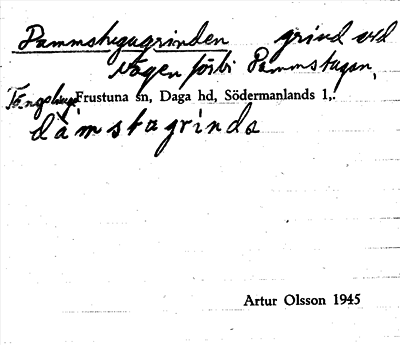 Dammstugugrinden grind vid
vägen förbi Dammstugan,
Frustuna sn, Daga hd, Södermanlands l,.
dàmstagrinda
Artur Olsson 1945